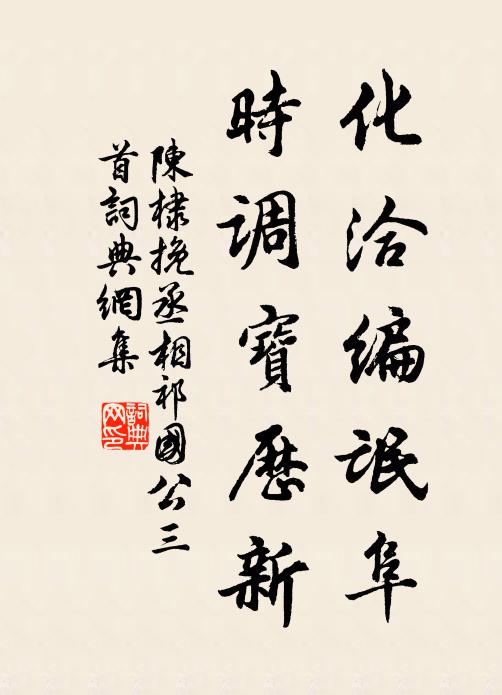 化洽編氓阜
時調寶歷新
陳棣挽丞相祁國公三
首詞典網集
詞典
网印